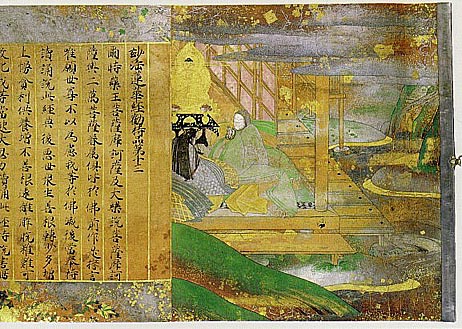 妙法蓮華經勸持品第十二
爾時藥王菩薩摩訶薩及大樂說菩薩摩訶
薩與二萬菩薩眷屬俱皆於佛前作是誓言
唯願世尊不以為慮我等於佛滅後當奉持
讀誦說此經典後惡世眾生善根轉少多增
上慢貪利供養增不善根遠離解脫雖難可
教化我等當起大忍力讀誦此經持說書寫